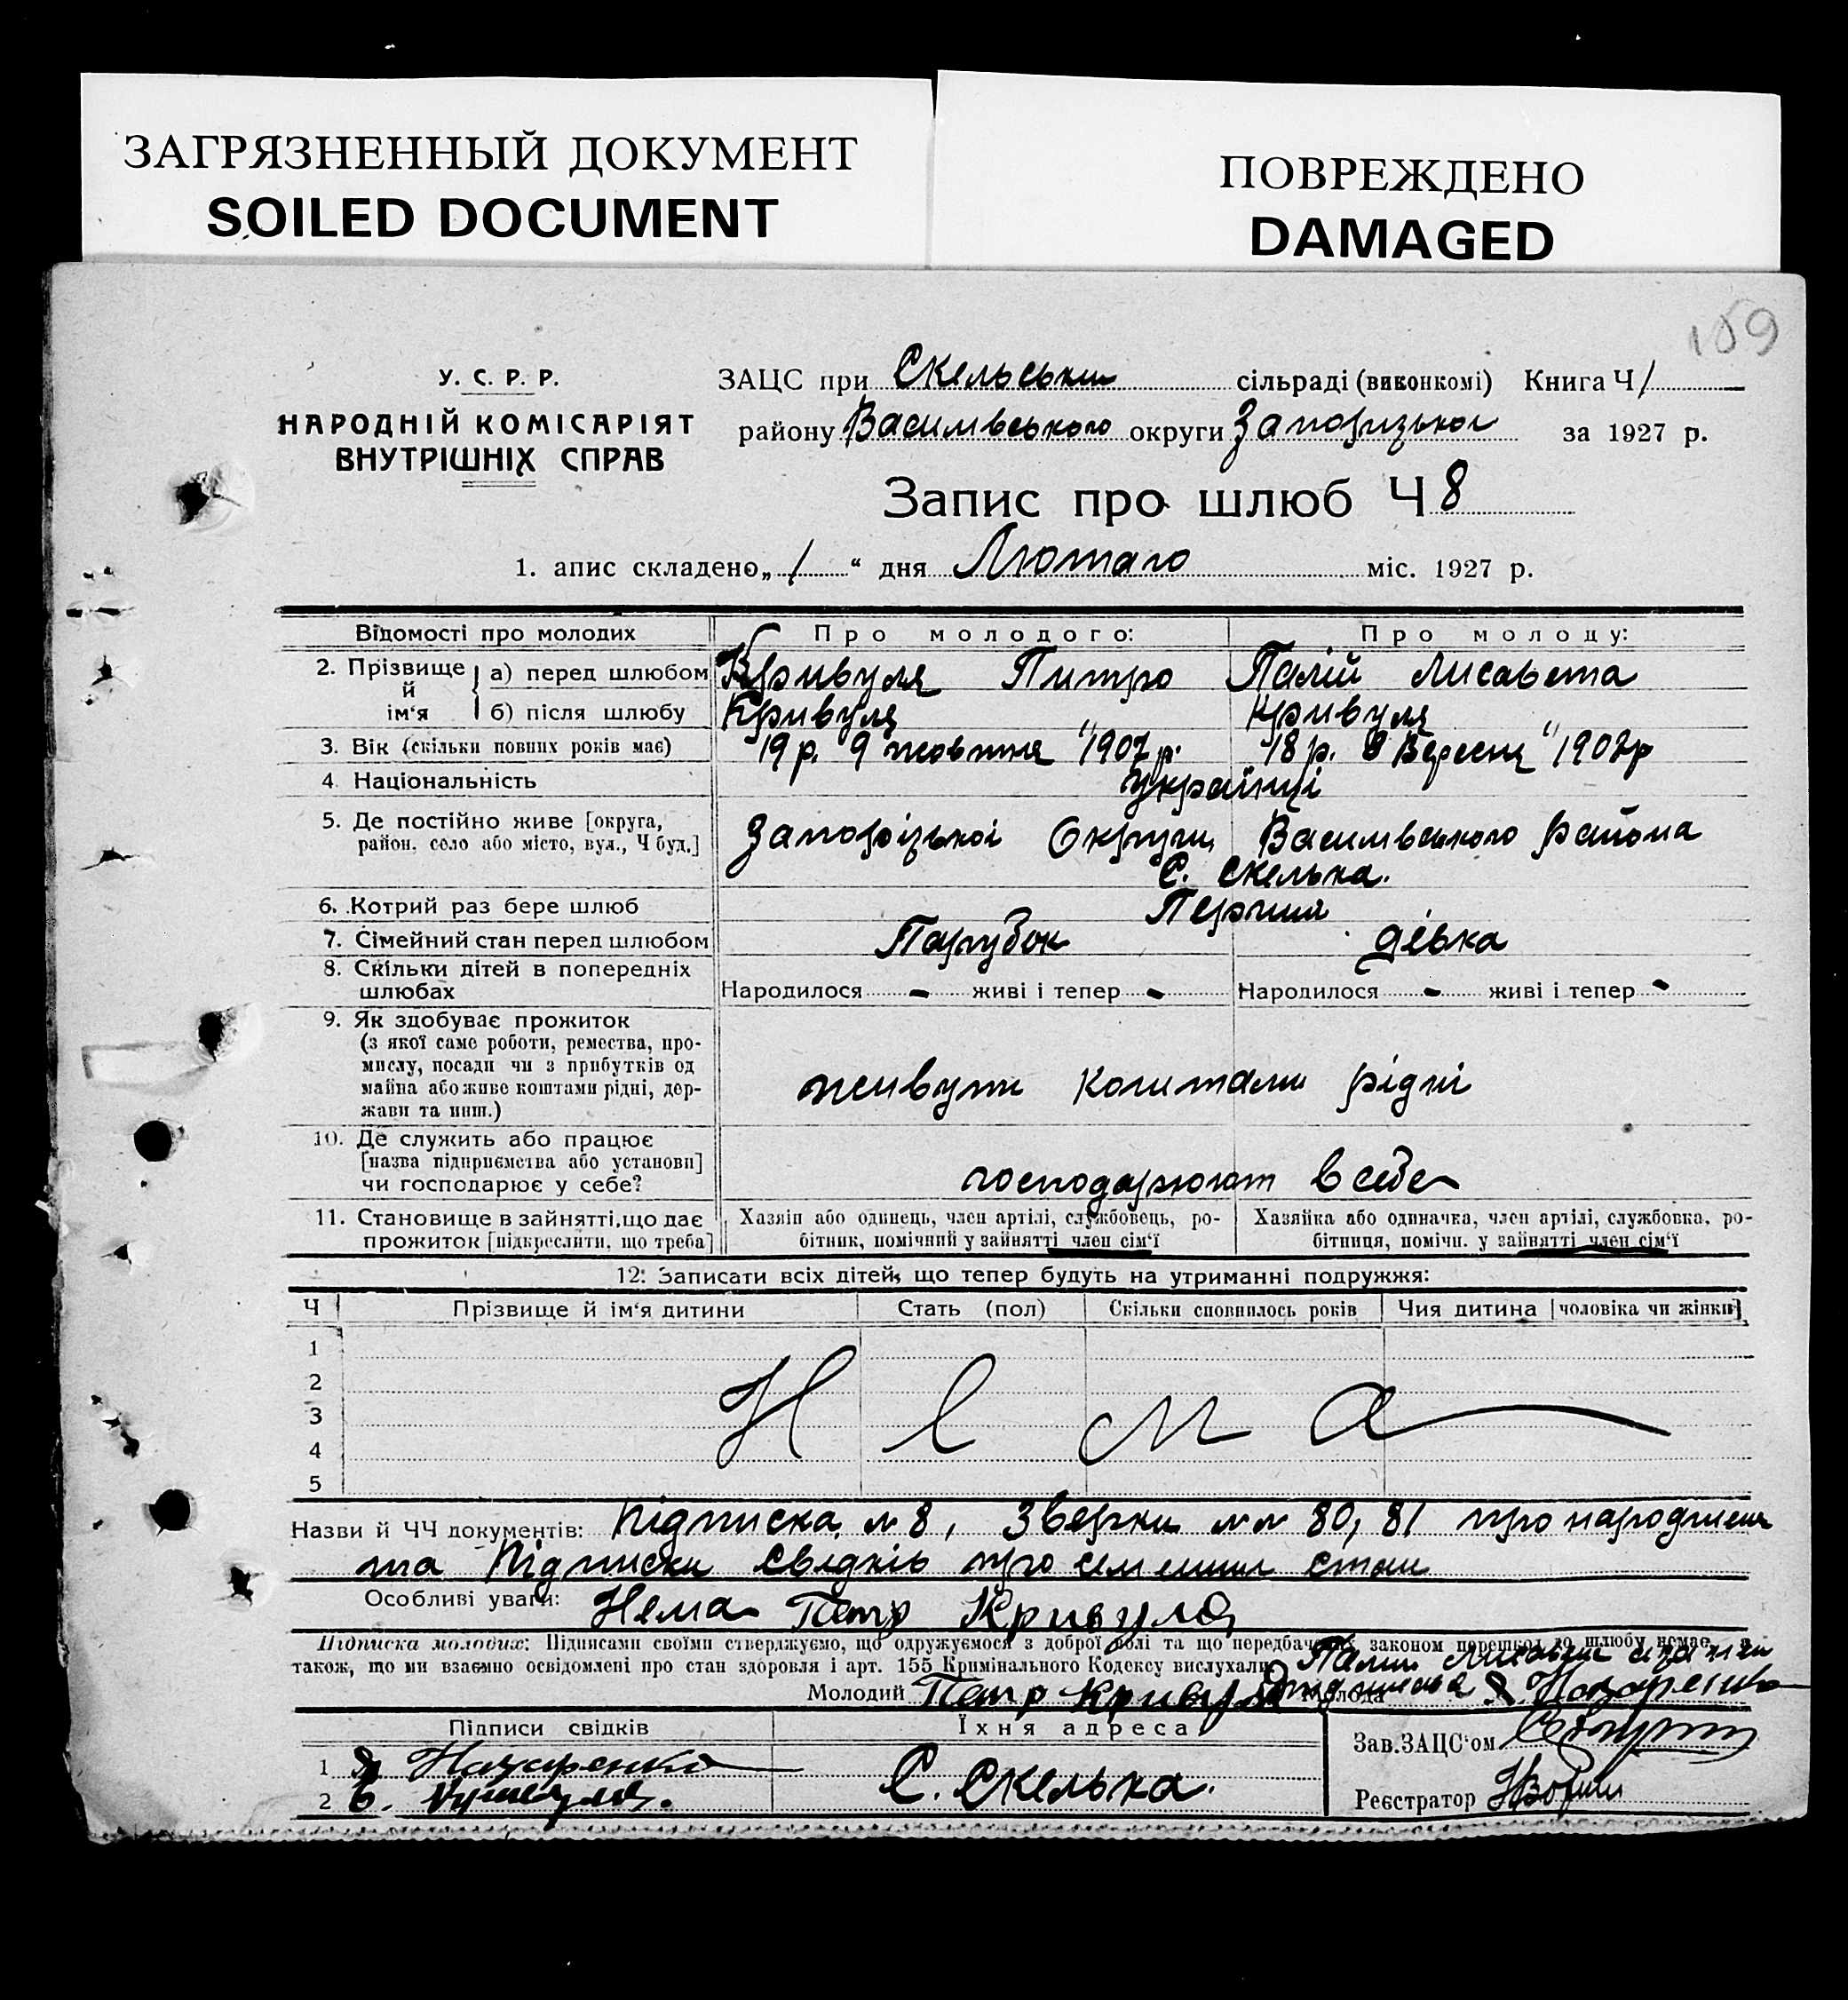 ЗАГРЯЗНЕННЫЙ ДОКУМЕНТ
SOILED DOCUMENT
ПОВРЕЖДЕНО
DAMAGED
159
У. С. Р. Р.
НАРОДНІЙ КОМІСАРІЯТ
ВНУТРІШНІХ СПРАВ
ЗАЦС при Скельськи сільраді (виконкомі) Книга Ч 1
району Василівського округи Запорізької за 1927 р.
Запис про шлюб Ч 8
1. апис складено „ 1 “ дня Лютаго міс. 1927 р.
Відомості про молодих Про молодого: Про молоду:
2. Прізвище й ім‘я а) перед шлюбом Кривуля Питро Палій Лисавета
б) після шлюбу Кривуля Кривуля
3. Вік (скільки повних років має) 19 р. 9 жовтня 1907 р. 18 р. Вересня
4. Національність Українці
5. Де постійно живе [округа, район, село або місто, вул., Ч буд.] Запорізької Округи Василівського района
С. Скелька.
6. Котрий раз бере шлюб Перший
7. Сімейний стан перед шлюбом Парубок дівка
8. Скільки дітей в попередніх шлюбах Народилося - живі і тепер - Народилося - живі і тепер -
9. Як здобуває прожиток
(з якої саме роботи, ремества, про-
мислу, посади чи з прибутків од
майна або живе коштами рідні, дер-
жави та инш.) живуть коштами рідні
10. Де служить або працює
[назва підприємства або установи]
чи господарює у себе? господарюют в себе
11. Становище в зайнятті, що дає
прожиток [підкреслити, що треба]
Хазяін або одинець, член артілі, службовець, ро-
бітник, помічний у зайнятті член сім‘ї
Хазяйка або одиначка, член артілі, службовка, ро-
бітниця, помічн. у зайнятті член сім‘ї
12. Записати всіх дітей, що тепер будуть на утриманні подружжя:
Ч Прізвище й ім‘я дитини Стать (пол) Скільки сповнилось років Чия дитина [чоловіка чи жінки]
1
2
3
4
5
Нема
Назви й ЧЧ документів: Підписка № 8, Зверки №№ 80, 81 про народження
та Підписки свідків про стан
Особливі уваги: Нема Петр Кривуля
Підписка молодих: Підписами своїми стверджуємо, що одружуємося з доброї волі та що передбачених законом перешкод до шлюбу немає, а
також, що ми взаємно освідомлені про стан здоровля і арт. 155 Кримінального Кодексу вислухали.
Молодий Петр Кривуля Молода Назаренко
Підписи свідків Їхня адреса Зав. ЗАЦС‘ом
1 Назаренко
2 С. Скелька.
Реєстратор